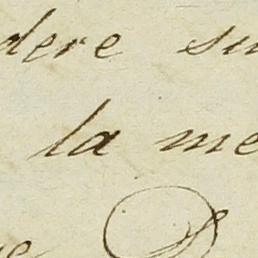 dere su
la me